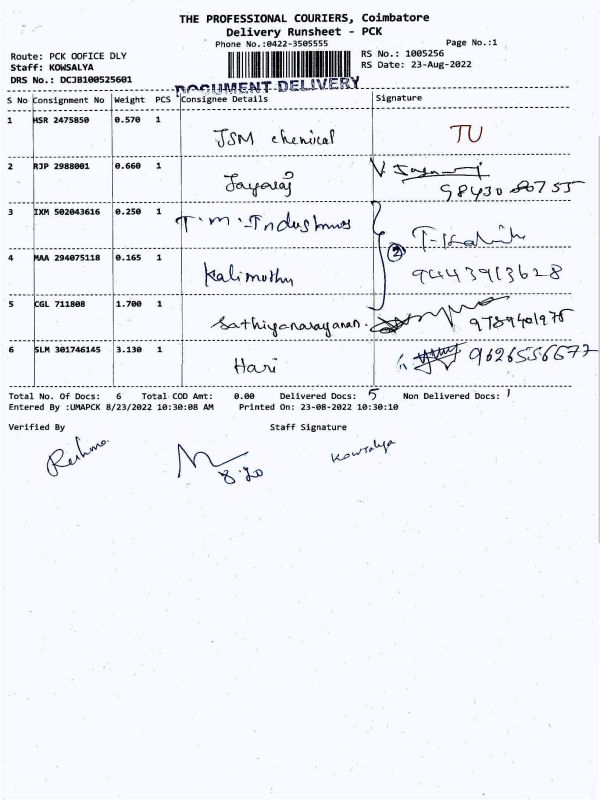 THE PROFESSIONAL COURIERS, Coimbatore
Delivery Runsheet - PCK
Phone No.:0422-3505555
Page No.:1
Route: PCK OOFICE DLY
RS No.: 1005256
Staff: KOWSALYA
RS Date: 23-Aug-2022
DRS No.: DCJB100525601
DOCUMENT DELIVERY
S No Consignment No Weight PCS Consignee Details Signature
1 HSR 2475850 0.570 1 JSM chemical TU
2 RJP 2988001 0.660 1 Jayaraj
3 IXM 502043616 0.250 1 T.M. Industries
2
4 MAA 294075118 0.165 1 Kalimuthu 9443913628
5 CGL 711808 1.700 1 Sathiyanarayanan. 9789401975
6 SLM 301746145 3.130 1 Hari 9626556677
Total No. Of Docs: 6 Total COD Amt: 0.00 Delivered Docs: 5 Non Delivered Docs: 1
Entered By :UMAPCK 8/23/2022 10:30:08 AM Printed On: 23-08-2022 10:30:10
Verified By Staff Signature
Reshma 8.20 Kowsalya